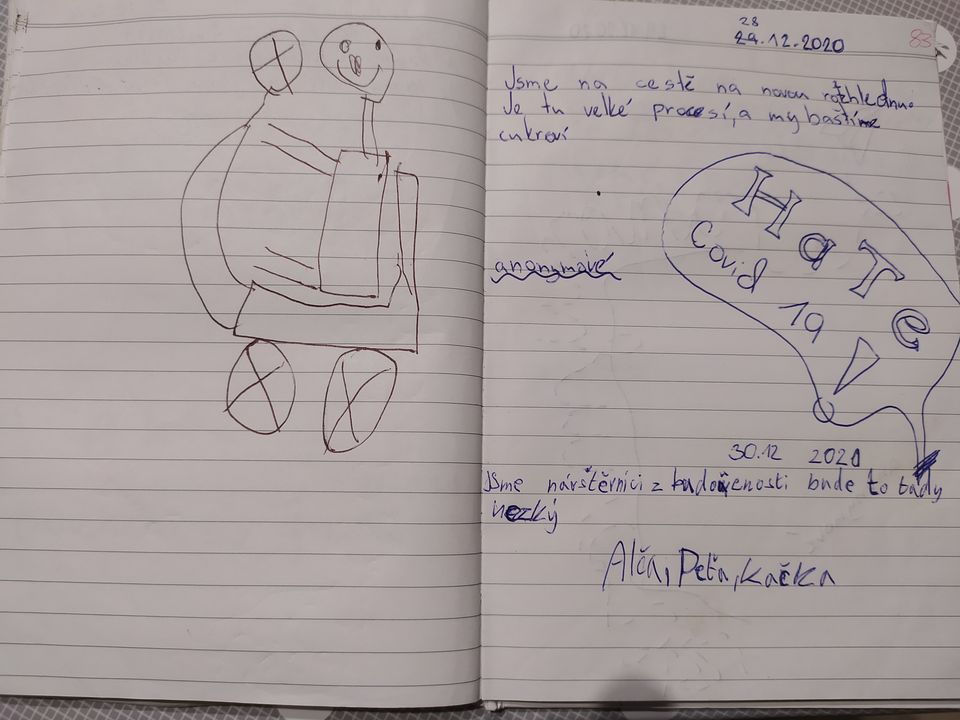 28
29.12.2020
83
Jsme na cestě na novou rozhlednu.
Je tu velké procesí, a my baštíme
cukroví
HaTe
Covid 19
!
anonymové
30.12 2021
Jsme návrštěrníci z budoucnosti bude to tady
hezký
Alča, Peťa, Kačka